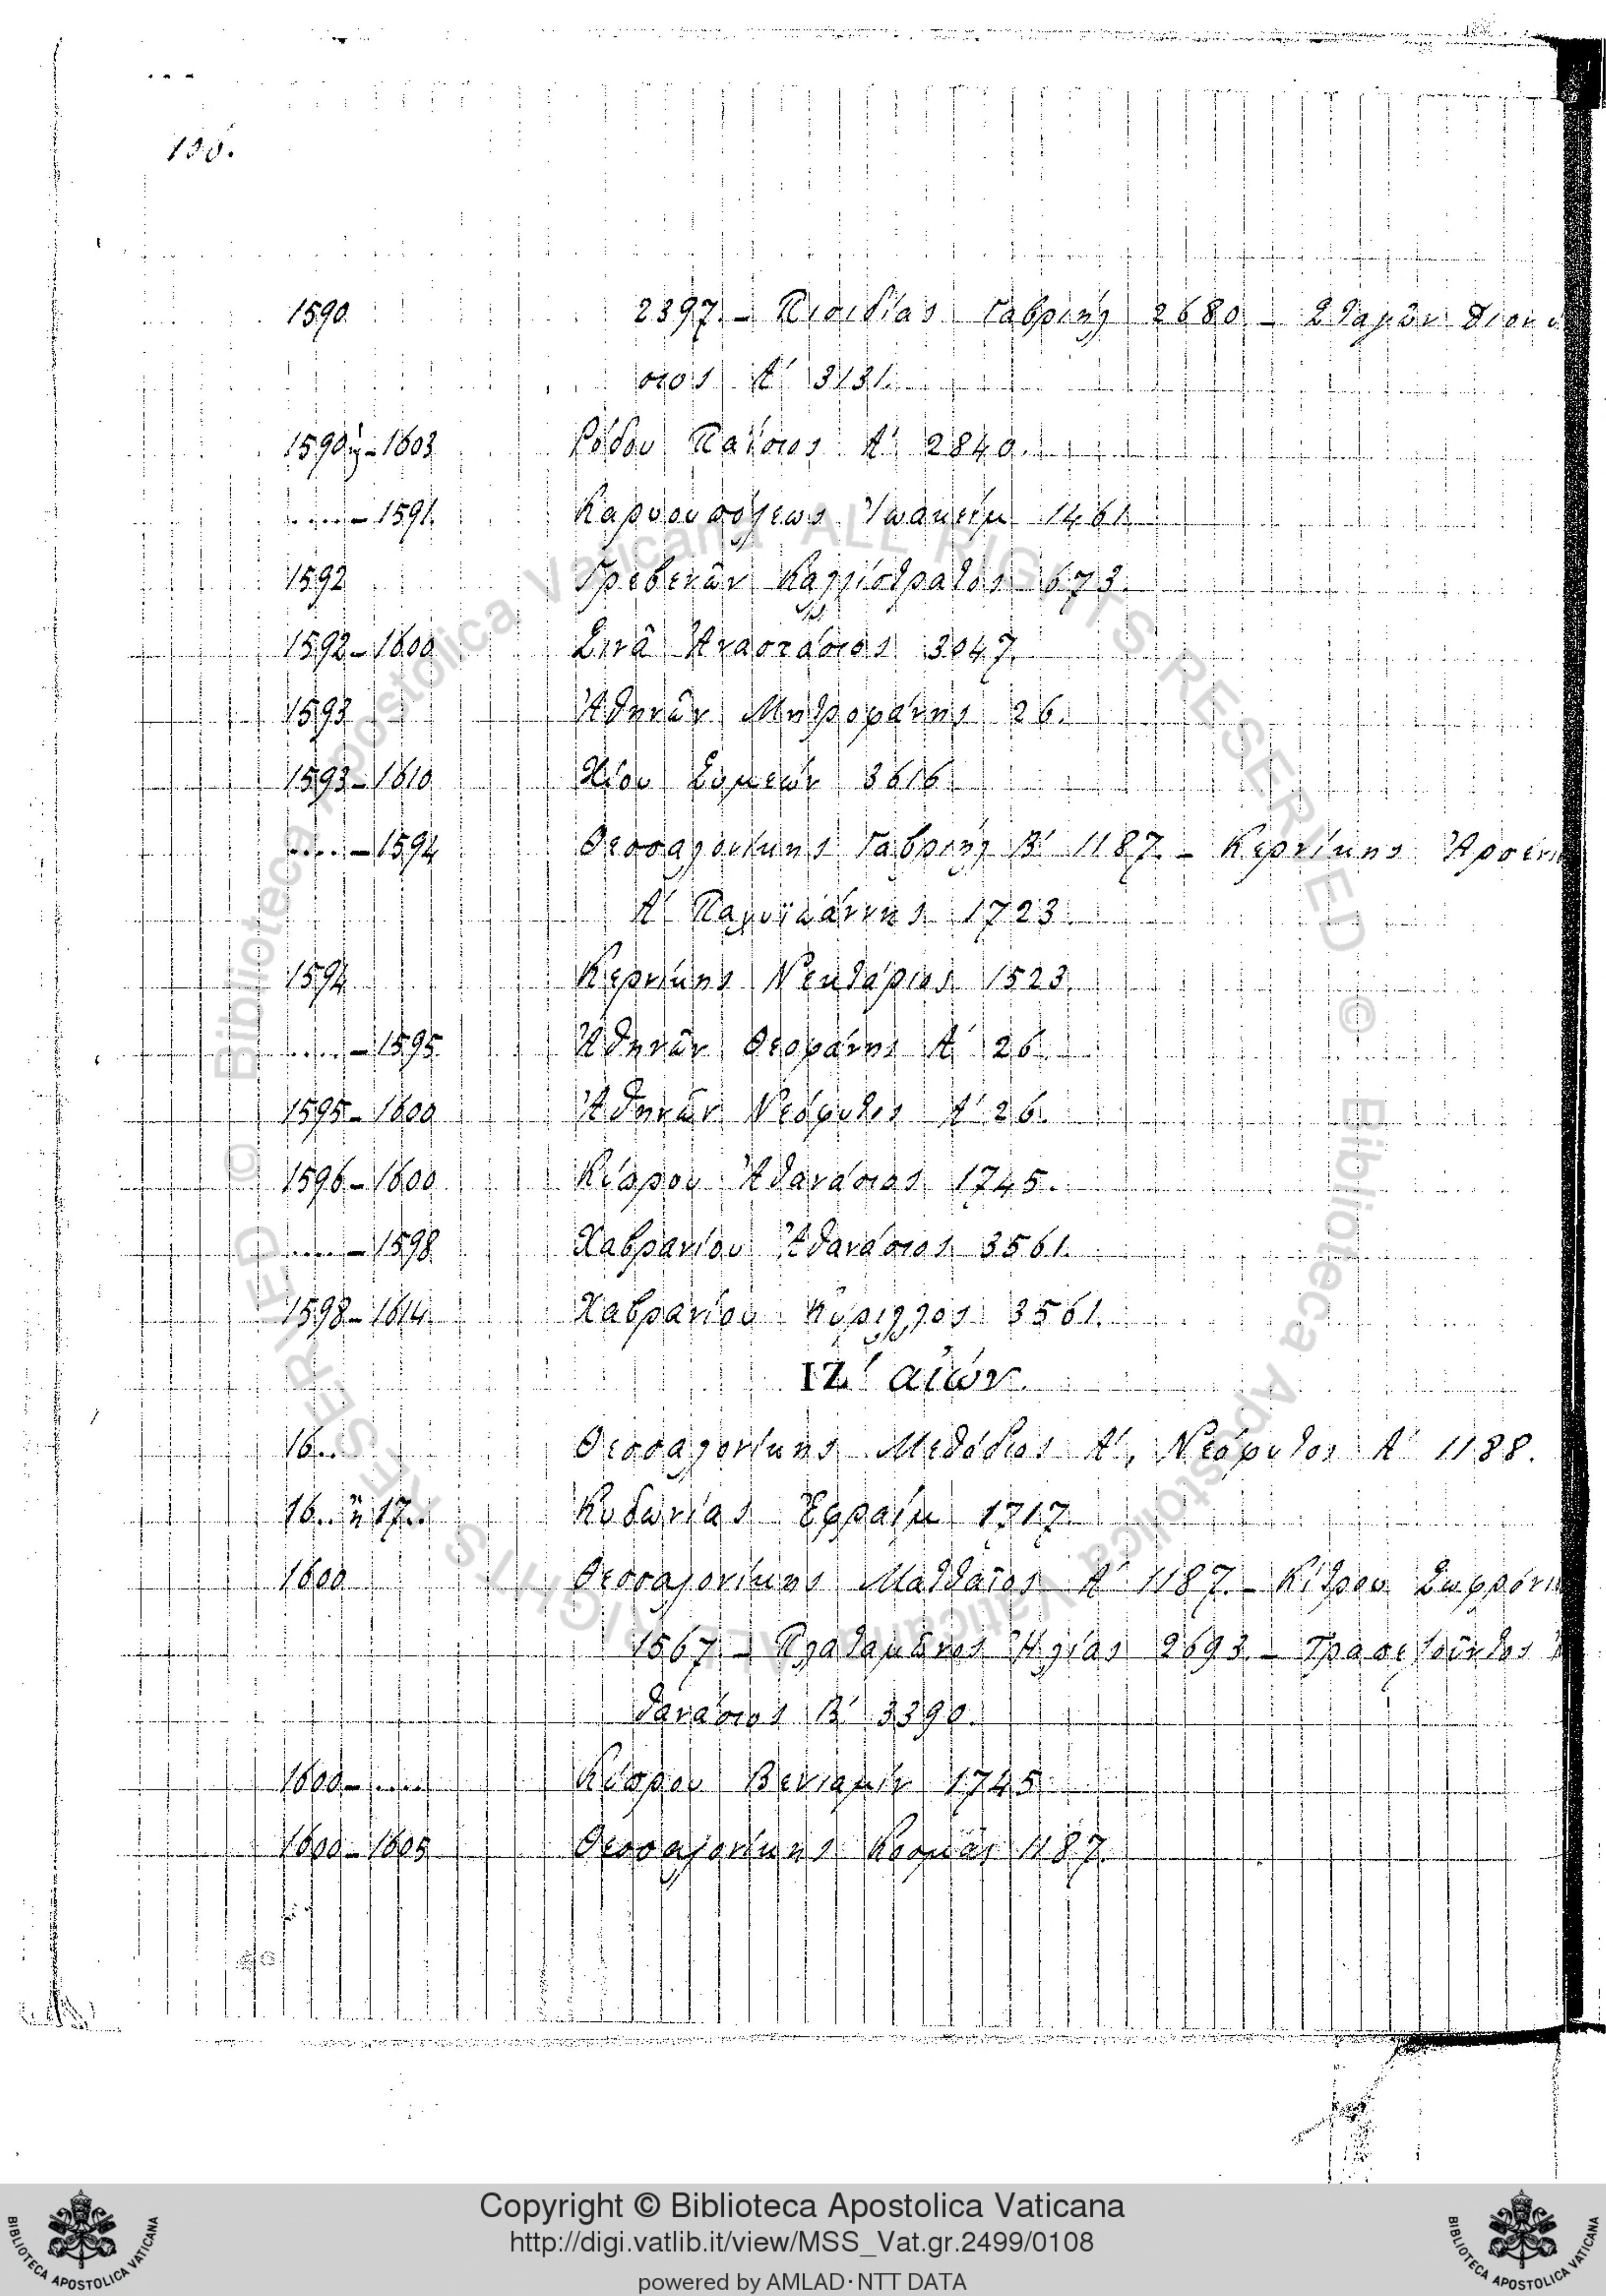 1590 2397. – Πισιδίας Γαβριήλ 2680. – Σταγῶν Διονύ
σιος Α΄ 3131.
1590 ἢ – 1603 Ῥόδου Παΐσιος Α΄ 2840.
.... – 1591. Καρυουπόλεως Ἰωακεὶμ 1461.
1592 Γρεβενῶν Καλλίστρατος 673.
1592 – 1600 Σινᾶ Ἀναστάσιος 3047.
1593 Ἀθηνῶν Μητροφάνης 26.
1593 – 1610 Χίου Συμεών 3616.
.... – 1594 Θεσσαλονίκης Γαβριήλ Β΄ 1187. – Κερνίκης Ἀρσένι
Α΄ 1723.
1594 Κερνίκης Νεκτάριος 1523.
.... – 1595 Ἀθηνῶν Θεοφάνης Α΄ 26.
1595 – 1600 Ἀθηνῶν Νεόφυτος Α΄ 26.
1596 – 1600 Κύπρου Ἀθανάσιος 1745.
.... – 1598 Χαβρανίου Ἀθανάσιος 3561.
1598 – 1614 Χαβρανίου Κύριλλος 3561.
ΙΖ΄ αἰών.
16.. Θεσσαλονίκης Μεθόδιος Α΄, Νεόφυτος Α΄ 1188.
16.. ἢ 17.. Κυδωνίας Ἐφραὶμ 1717.
1600 Θεσσαλονίκης Ματθαῖος Α΄ 1187. – Κίτρου Σωφρόνι
1567. – Πλαταμῶνος Ἠλίας 2693. – Τραπεζοῦντος Ἀ
θανάσιος Β΄ 3390.
1600 – .... Κύπρου Βενιαμίν 1745.
1600 – 1605 Θεσσαλονίκης Κοσμᾶς 1187.
© Biblioteca Apostolica Vaticana ALL RIGHTS RESERVED © Biblioteca Apostolica Vaticana ALL RIGHTS RESERVED
Copyright © Biblioteca Apostolica Vaticana
http://digi.vatlib.it/view/MSS_Vat.gr.2499/0108
powered by AMLAD·NTT DATA
BIBLIOTECA APOSTOLICA VATICANA
BIBLIOTECA APOSTOLICA VATICANA